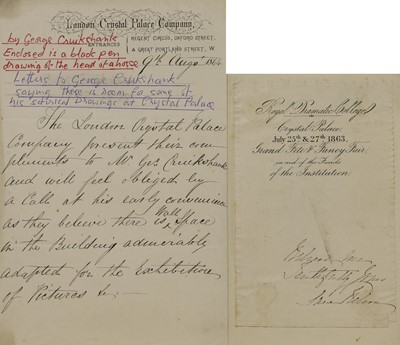 London Crystal Palace Company,
ENTRANCES
REGENT CIRCUS, OXFORD STREET,
& GREAT PORTLAND STREET, W
by George Cruikshank
Enclosed is a black pen
drawing of the head of a horse
9th Augst 1864
Letters to George Cruikshank
saying there is room for some of
his satirical Drawings at Crystal Palace
The London Crystal Palace
Company present their com
pliments to Mr Geo Cruikshank
and will feel obliged by
a Call at his early convenience
as they believe there is Wall Space
in the Building admirably
adapted for the Exhibition
of Pictures &c;
Royal Dramatic College
Crystal Palace
July 25th & 27th 1863.
Grand Fete & Fancy Fair
in aid of the Funds
of the Institution